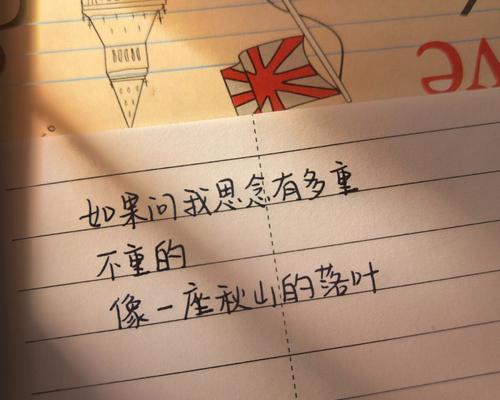 ve
如果问我思念有多重
不重的
像一座秋山的落叶